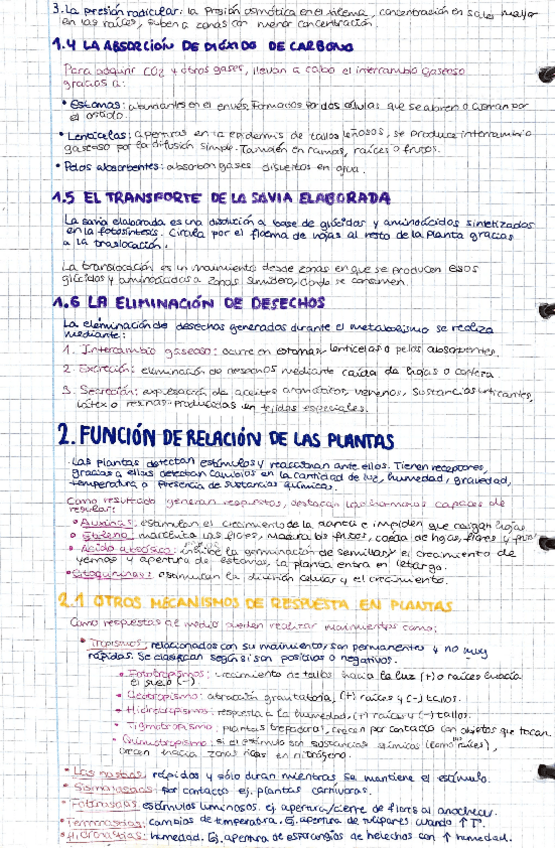 3. La presión radicular: la presión osmótica en el xilema, concentración en sales mayor
en las raíces, suben a zonas con menor concentración.
1.4 LA ABSORCIÓN DE DIÓXIDO DE CARBONO
Para adquirir CO2 y otros gases, llevan a cabo el intercambio gaseoso
gracias a:
• Estomas: abundantes en el envés. Formados por dos células que se abren o cierran por
el ostiolo.
• Lenticelas: aperturas en la epidermis de tallos leñosos, se produce intercambio
gaseoso por la difusión simple. También en ramas, raíces o frutos.
• Pelos absorbentes: absorben gases disueltos en agua.
1.5 EL TRANSPORTE DE LA SAVIA ELABORADA
La savia elaborada es una disolución a base de glúcidos y aminoácidos sintetizados
en la fotosíntesis. Circula por el floema de hojas al resto de la planta gracias
a la traslocación.
La translocación es un movimiento desde zonas en que se producen esos
glúcidos y aminoácidos a zonas sumidero, donde se consumen.
1.6 LA ELIMINACIÓN DE DESECHOS
La eliminación de desechos generados durante el metabolismo se realiza
mediante:
1. Intercambio gaseoso: ocurre en estomas, lenticelas o pelos absorbentes.
2. Excreción: eliminación de desechos mediante caída de hojas o corteza.
3. Secreción: expulsación de aceites aromáticos, venenos, sustancias urticantes,
látex o resinas producidas en tejidos especiales.
2. FUNCIÓN DE RELACIÓN DE LAS PLANTAS
Las plantas detectan estímulos y reaccionan ante ellos. Tienen receptores,
gracias a ellos detectan cambios en la cantidad de luz, humedad, gravedad,
temperatura o presencia de sustancias químicas.
Como resultado generan respuestas, destacan las hormonas capaces de
regular:
• Auxinas: estimulan el crecimiento de la planta e impiden que caigan hojas
• Etileno: marchita las flores, madura los frutos, caída de hojas, flores y frutos
• Ácido abscísico: inhibe la germinación de semillas y el crecimiento de
yemas y apertura de estomas, la planta entra en letargo.
• Citoquininas: estimulan la división celular y el crecimiento.
2.1 OTROS MECANISMOS DE RESPUESTA EN PLANTAS
Como respuestas al medio pueden realizar movimientos como:
• Tropismos: relacionados con su movimiento, son permanentes y no muy
rápidas. Se clasifican según si son positivos o negativos.
• Fototropismos: crecimiento de tallos hacia la luz (+) o raíces hacia
el suelo (-).
• Geotropismo: atracción gravitatoria, (+) raíces y (-) tallos.
• Hidrotropismo: respuesta a la humedad, (+) raíces y (-) tallos.
• Tigmotropismo: plantas trepadoras, crecen por contacto con objetos que tocan.
• Quimiotropismo: si el estímulo son sustancias químicas (como raíces),
crecen hacia zonas ricas en nitrógeno.
• Las nastias: rápidos y sólo duran mientras se mantiene el estímulo.
• Sismonastias: por contacto ej. plantas carnívoras.
• Fotonastias: estímulos luminosos. ej. apertura/cierre de flores al anochecer.
• Termonastias: cambios de temperatura. Ej. apertura de tulipanes cuando ↑ Tª.
• Hidronastias: humedad. Ej. apertura de esporangios de helechos con ↑ humedad.